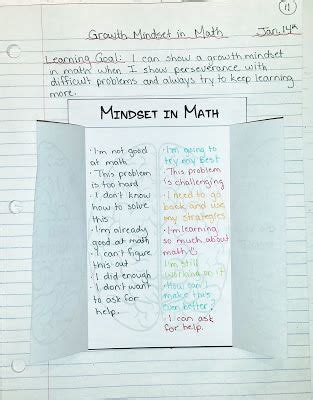 11
Growth Mindset in Math Jan. 14th
Learning Goal: I can show a growth mindset
in math when I show perseverance with
difficult problems and always try to keep learning
more.
MINDSET IN MATH
· I'm not good
at math
· This problem
is too hard
· I don't know
how to solve
this
· I'm already
good at math
· I can't figure
this out
· I did enough
· I don't want
to ask for
help.
· I'm going to
try my best
· This problem
is challenging
· I need to go
back and use
my strategies
· I'm learning
so much about
math
· I'm still
working on it
· How can I
make this
even better?
· I can ask
for help.